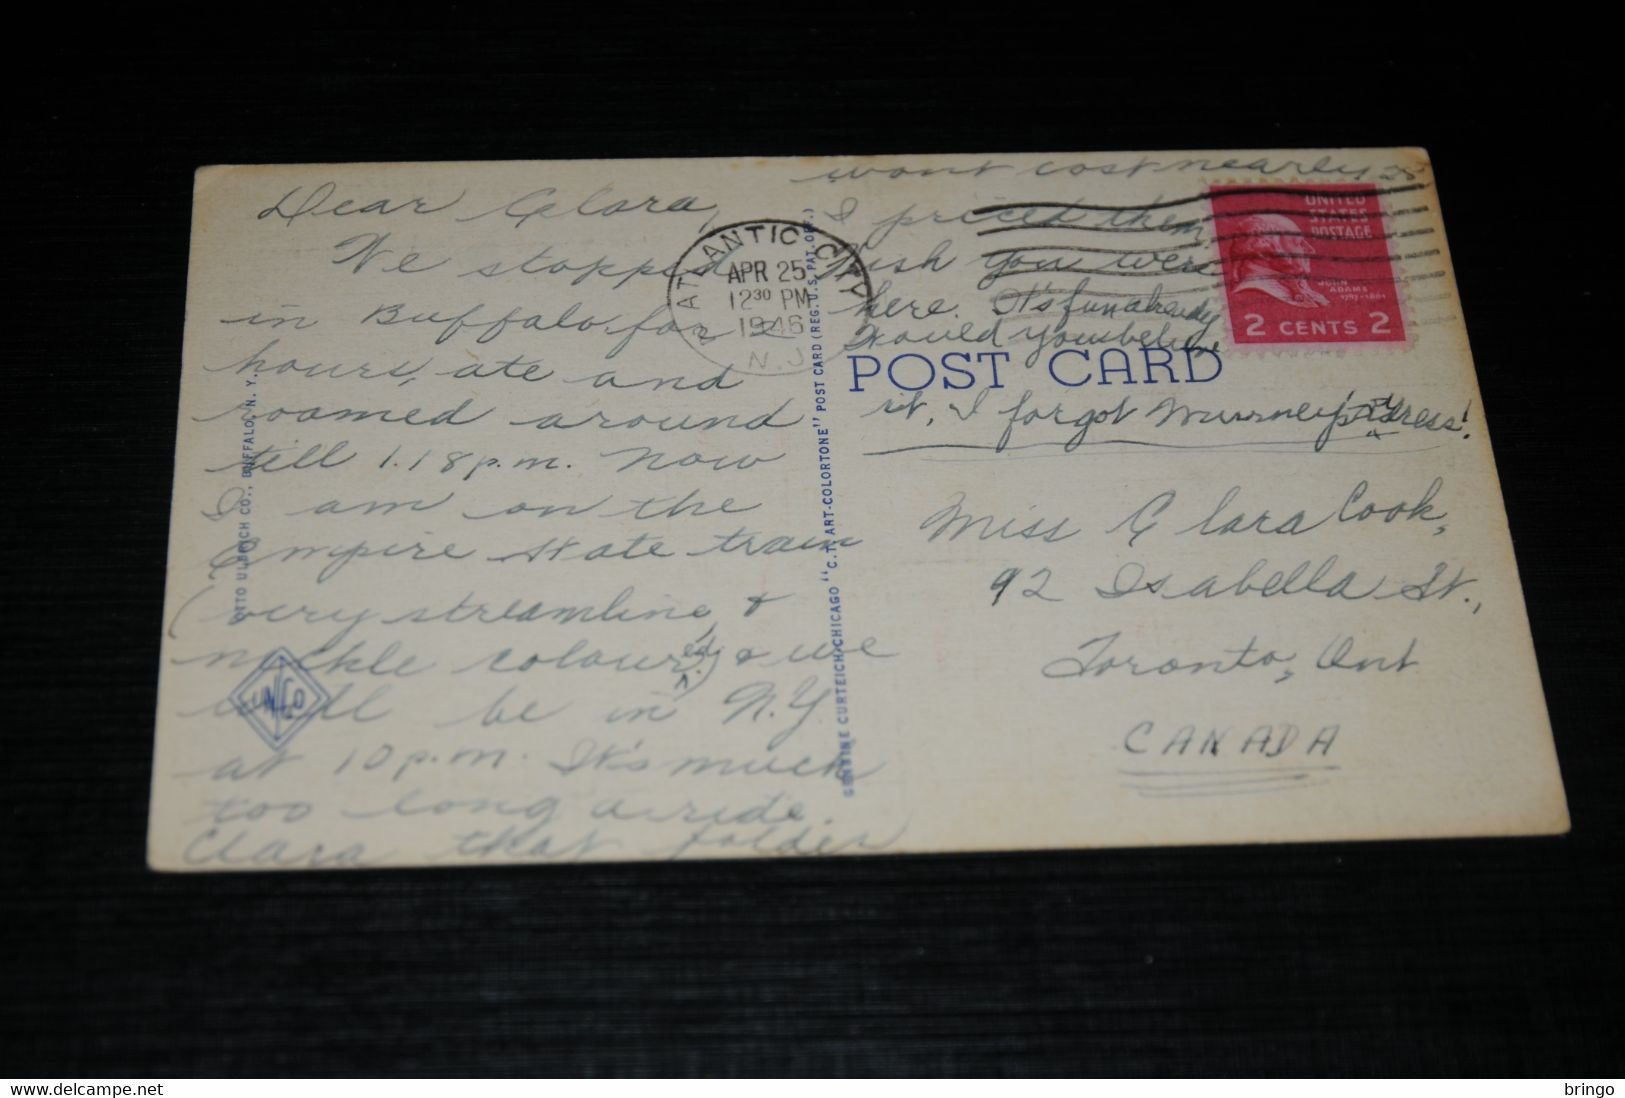 Dear Clara,
We stopped
in Buffalo for 2
hours, ate and
roamed around
till 1.18 p.m. Now
I am on the
Empire State train
(very streamline &
nickle coloured) & we
will be in N.Y
at 10 p.m. It's much
too long a ride.
Clara that folder
wont cost nearly as
I priced them
Wish you were
here. It's fun already
Would you believe
it, I forgot address!
Miss Clara Cook,
92 Isabella St.,
Toronto, Ont
CANADA
ATLANTIC CITY
APR 25
12 30 PM
1946
N.J.
UNITED
STATES
POSTAGE
JOHN
ADAMS
1797-1801
2 CENTS 2
POST CARD
GENUINE CURTEICH-CHICAGO "C.T. ART-COLORTONE" POST CARD (REG. U.S. PAT. OFF.)
OTTO ULBRICH CO., BUFFALO, N. Y.
delcampe.net
bringo